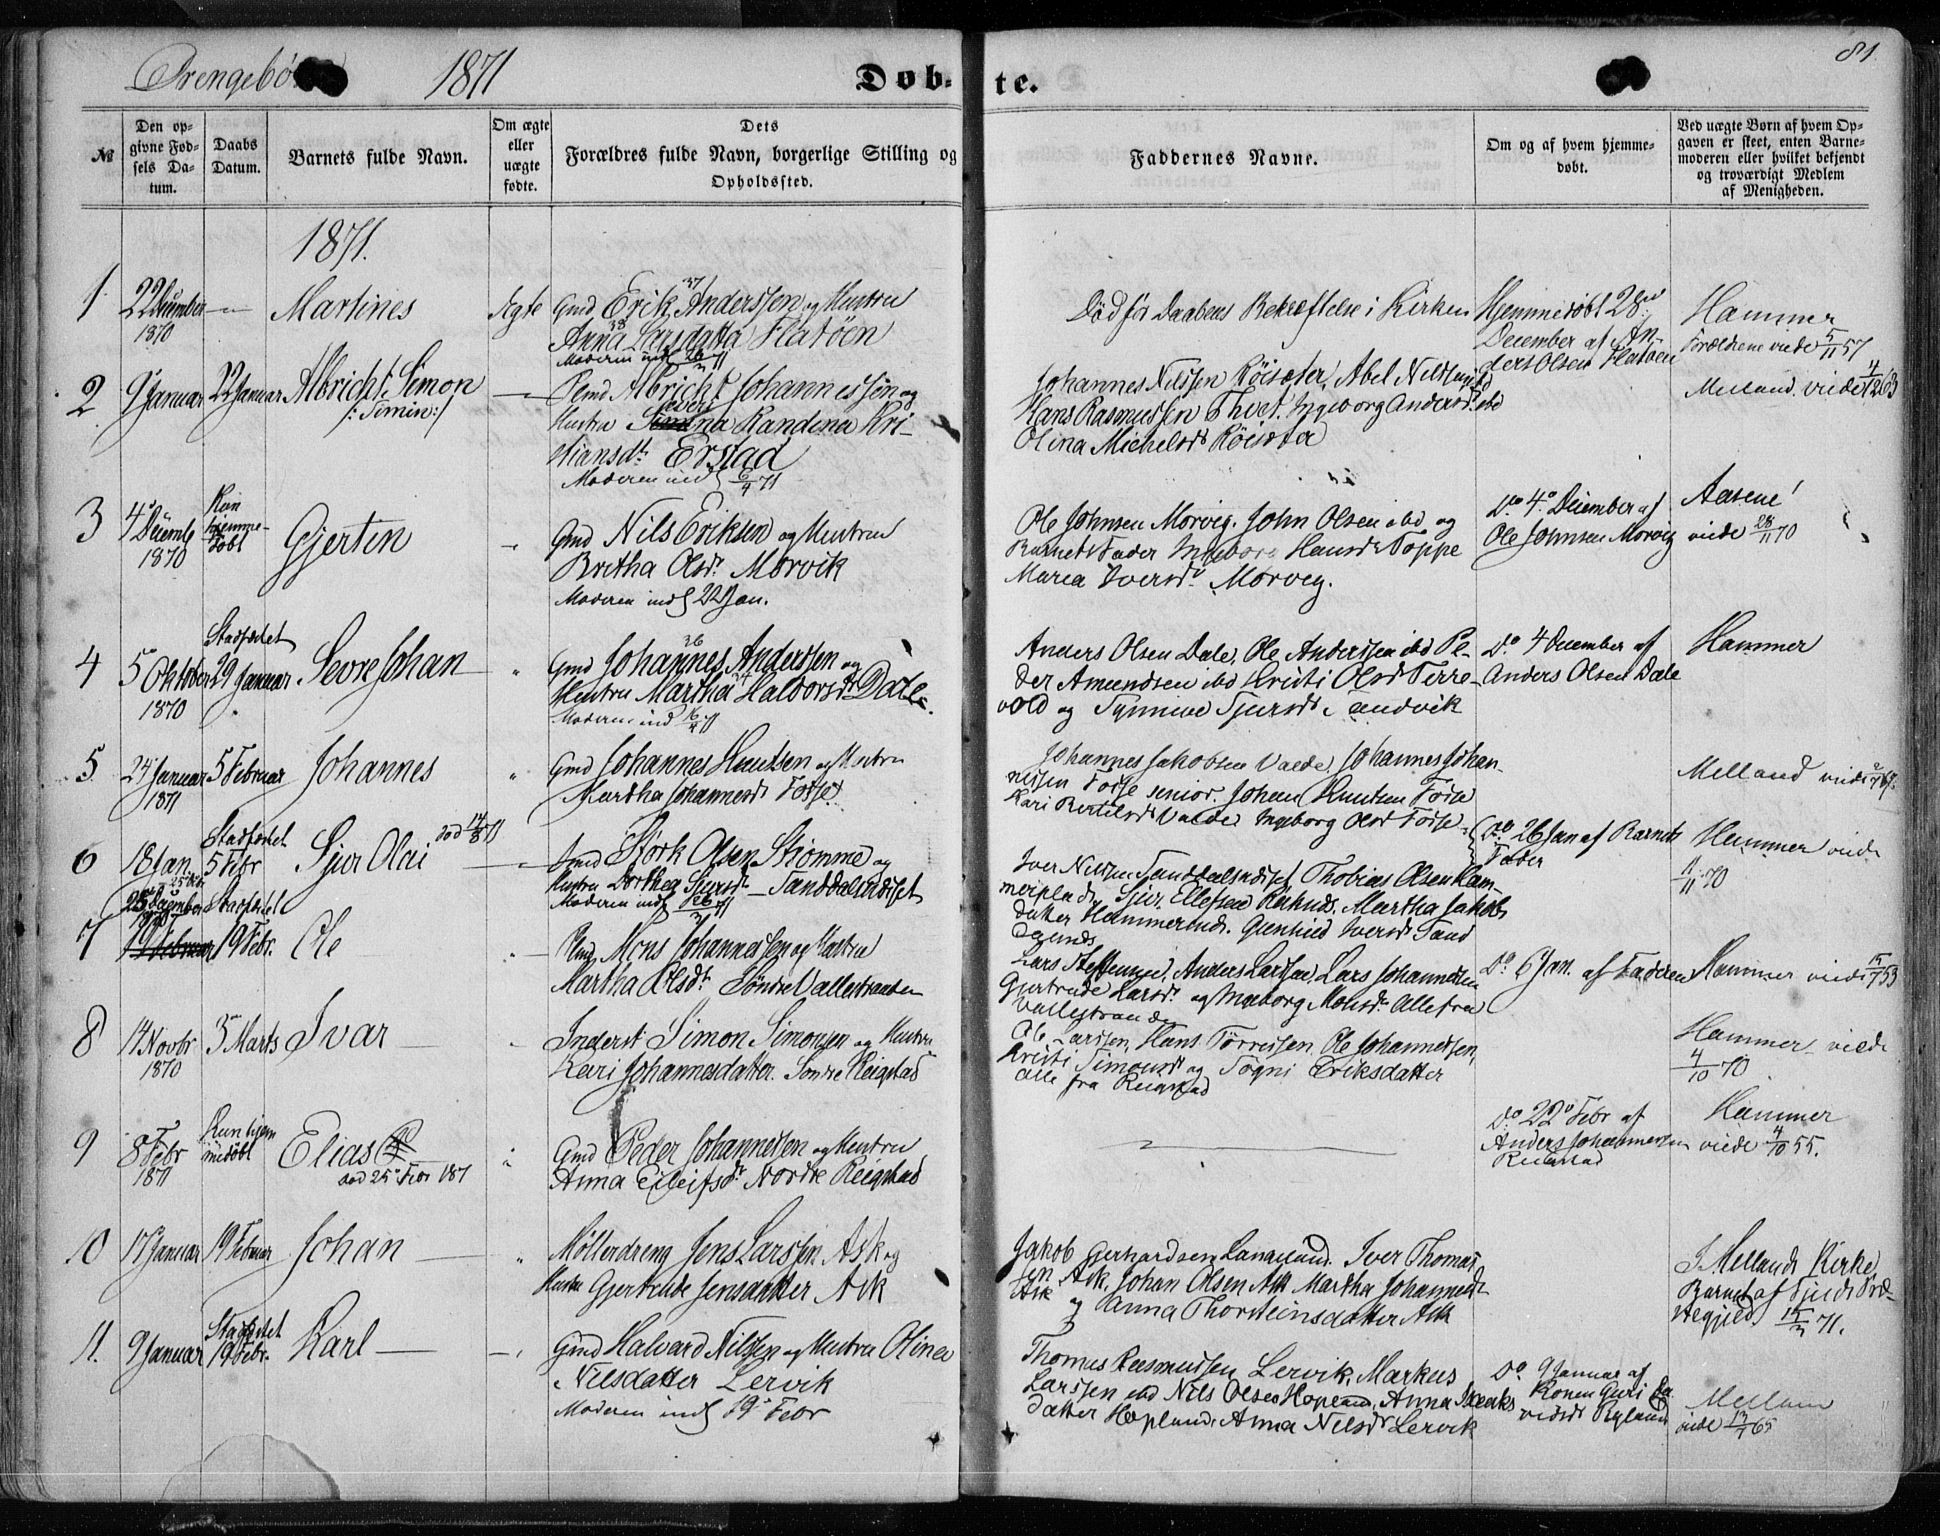 Drengebö
1871
Døb-
te.
81.
№
Den op-
givne Fød-
sels Da-
tum.
Daabs
Datum.
Barnets fulde Navn.
Om ægte
eller
uægte
fødte.
Dets
Forældres fulde Navn, borgerlige Stilling og
Opholdssted.
Faddernes Navne.
Om og af hvem hjemme-
døbt.
Ved uægte Børn af hvem Op-
gaven er skeet, enten Barne-
moderen eller hvilket bekjendt
og troværdigt Medlem
af Menigheden.
1871.
1
22 December
1870
Martines
Ægte
Gmd Erik Anderssen og Hustru
37
Anna Larsdatter Flatöen
38
Moderen indl
Död för Daabens Bekræftelse i Kirken
Hjemmedöbt 28de
December af An-
ders Olsen Flatöen
Hammer
Forældrene viede 5/11 57
2
9 Januar
22 Januar
Albricht Simon
/: Simin :/
Albricht Johannessen og
Hustru Randina Kri-
stiansdr Erstad
Moderen indl
Johannes Nilssen Röisæter, Abel
Hans Rasmussen Thvet. Ingeborg Andersdr ibd
Olina Michelsdr Röisæter
Melland. viede
3
4 Decemb
1870
Kun
hjemme-
døbt
Gjerten
Gmd Nils Eriksen og Hustru
Britha Olsdr Morvik
Moderen indl 22 Jan.
Ole Johnsen Morvig. John Olsen ibd og
Barnets Fader Ingeborg Hansdr Toppe
Maria Iversdr Morvig.
Do 4o December af
Ole Johnsen Morvig
Aasene
viede 28/11 70
4
5 Oktober
1870
Stadfæstet
29 Januar
Sevre Johan
Gmd Johannes Anderssen og
36
Hustru Martha Halvorsdr Dale.
Moderen ind
Anders Olsen Dale, Ole Anderssen ibd Pe-
der Amundsen ibd Kristi Olsdr Terre-
vold og Synneve Sjursdr Tandvik
Do 4 December af
Anders Olsen Dale
Hammer
5
24 Januar
1871
5 Februar
Johannes
Gmd Johannes Knutsen og Hustru
Martha Johannesdr Fosse
Johannes Jakobsen Valde, Johannes Johan-
nessen Fosse senior. Johan Knutsen Fosse
Kari Bertelsdr Valde, Ingeborg Olsdr Fosse
Melland viede
6
18 Jan
Stadfæstet
5 Febr
Sjur Olai
död
Störk Olsen Stömme og
Hustru Dorthea Sjursdr
Moderen indl
Iver Nilssen Thobias Olsen Ham-
Sjur Ellefsen Martha Jakobs
datter Gunhild Iversdr Tand
Do 26 Jan af Barnets
Fader
Hammer viede
1/11 70
7
19 Februar
Stadfæstet
19 Febr.
Ole
Mons Johannessen og Hustru
Martha Olsdr Söndre Vallestranden
Lars Steffensen, Anders Larssen, Lars Johannessen
Gjertrude Larsdr og Ingeborg Monsdr Alle fra
Vallestrande
Do 6 Jan. af Fadderen
Hammer viede
8
14 Novbr
1870
5 Marts
Ivar
Inderst Simon Simonsen og Hustru
Kari Johannesdatter. Söndre Reigstad
Ole Larssen, Hans Törressen, Ole Johannessen,
Kristi Simonsdr og Sögni Eriksdatter
alle fra Reigstad
Hammer viede
4/10 70
9
8 Febr
1871
Kun hjem
medöbt
Elias
död 25o Febr 187
Gmd Peder Johannessen og Hustru
Anna Eileifsdr Nordre Reigstad
Do 22o Febr af
Anders Johannessen
Reigstad
Hammer
viede 4/10 55.
10
17 Januar
19 Februar
Johan
Möllerdreng Jens Larssen, Ask og
Hustru Gjertrude Jensdatter Ask
Jakob Gerhardsen Langelund. Iver Thomas-
sen Ask, Johan Olsen Ask Martha Johannesdr
Ask og Anna Thorsteinsdatter Ask
I Mellands Kirke,
Barnet af Fjelds Præ-
stegjeld. 71.
11.
9 Januar
Stadfæstet
19 Febr.
Karl
Gmd Halvard Nilssen og Hustru Olina
Nilsdatter Lervik
Moderen indl 19o Febr
Thomas Rasmussen Lervik, Markus
Larssen ibd Nils Olsen Hopland, Anna Isaaks
datter Hopland, Anna Nilsdr Lervik
Do 9 Januar af
Konen Guri
Ryland
Melland
viede